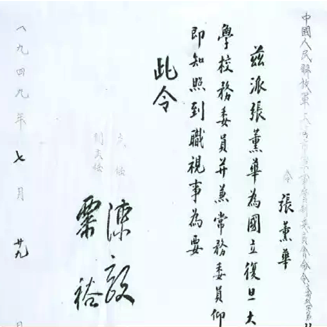 中國人民解放軍
令 張薰華
茲派張薰華為國立復旦大
學校務委員并兼常務委員仰
即知照到職視事為要
此令
陳毅
粟裕
一九四九年七月廿九日